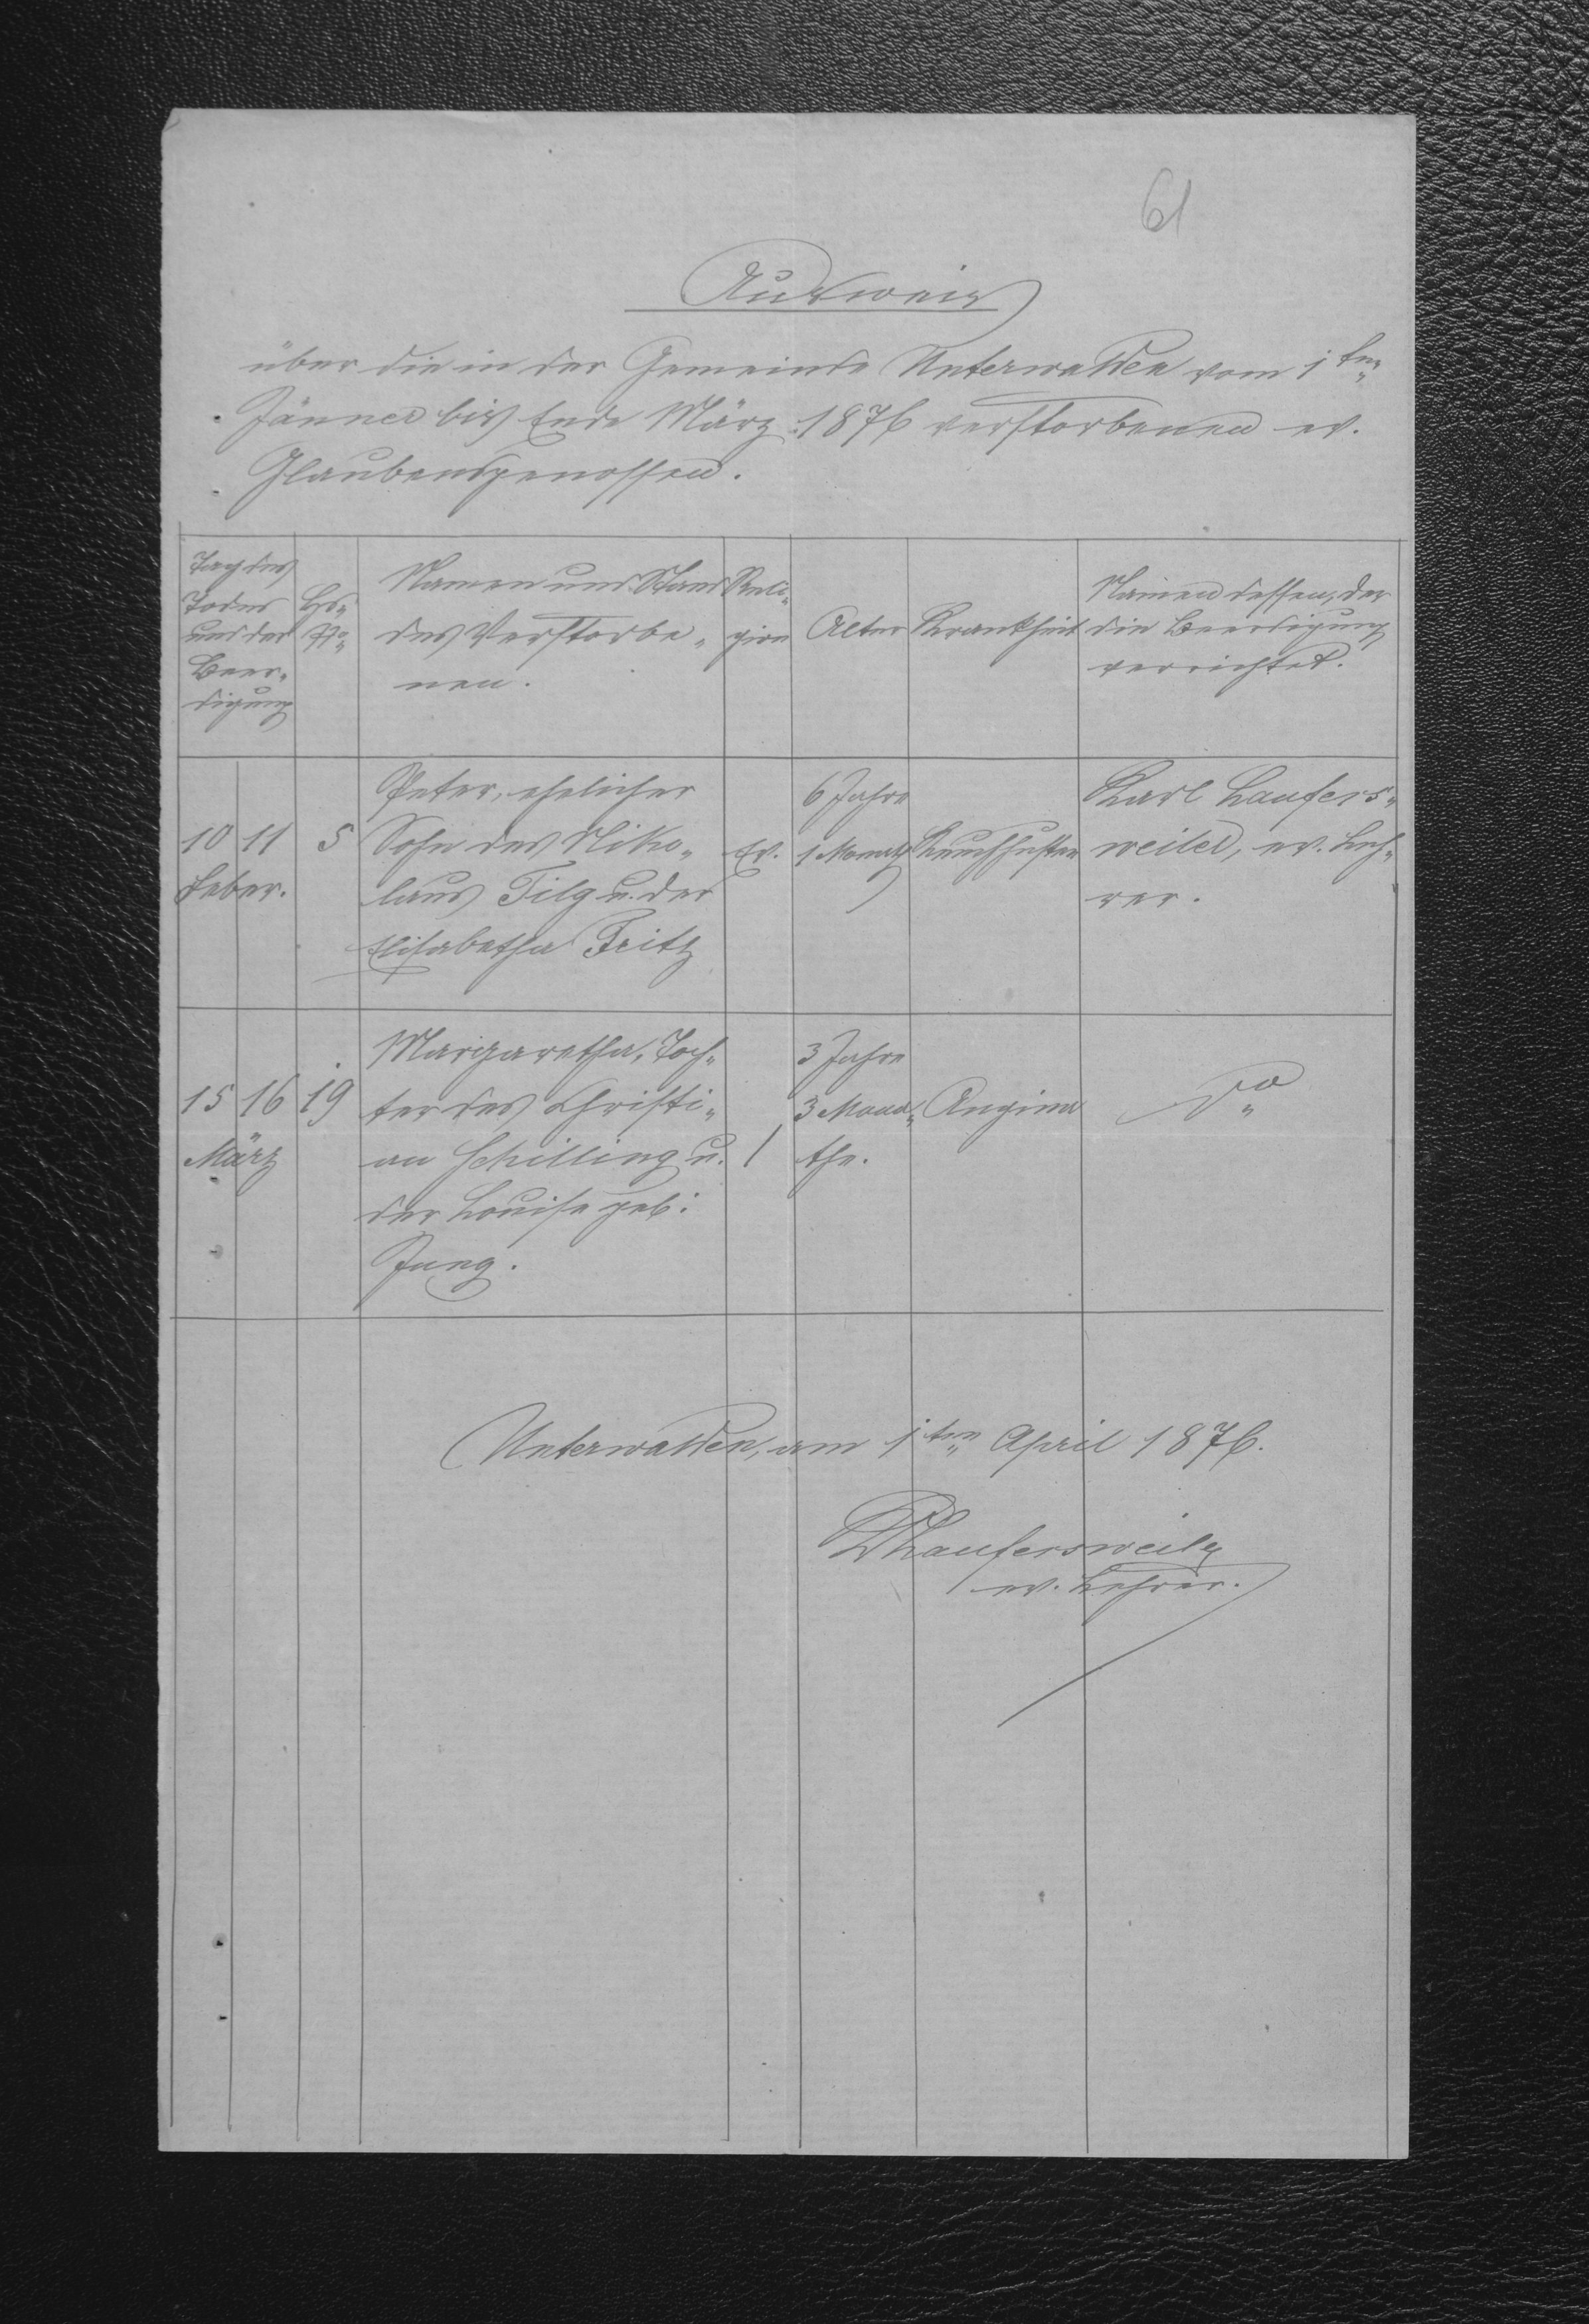 61
Ausweis
über die in der Gemeinde Unterwalden vom 1ten
Jänner bis Ende März 1876 verstorbenen ev.
Glaubensgenossen.
Tag des Todes und der Beer„ digung
Hs„ No„
Namen und Stand des Verstorbe„ nen.
Reli„ gion
Alter
Krankheit
Namen dessen, der die Beerdigung verrichtet.
10 11 Feber.
5
Peter, ehelicher
Sohn des Niko„
laus Tilg u. der
Elisabetha Fritz
Ev.
6 Jahre
1 Monat
Keuchhusten
Karl Laufers„
weiler, ev. Leh„
rer.
15 16 März
19
Margaretha, Toch„
ter des Christi„
an Schilling u.
der Louise geb.
Jung.
3 Jahre
3 Mona„
the.
Angina
do
Unterwalden, am 1ten April 1876.
KLaufersweiler
ev. Lehrer.